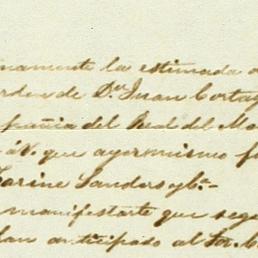 namente la estimada
orden de Dn Juan Cortaz
pañia del Real del Mo
á V. que ayer mismo f
Sanders y Ca
manifestarte que segu
han anticipado al Sor.